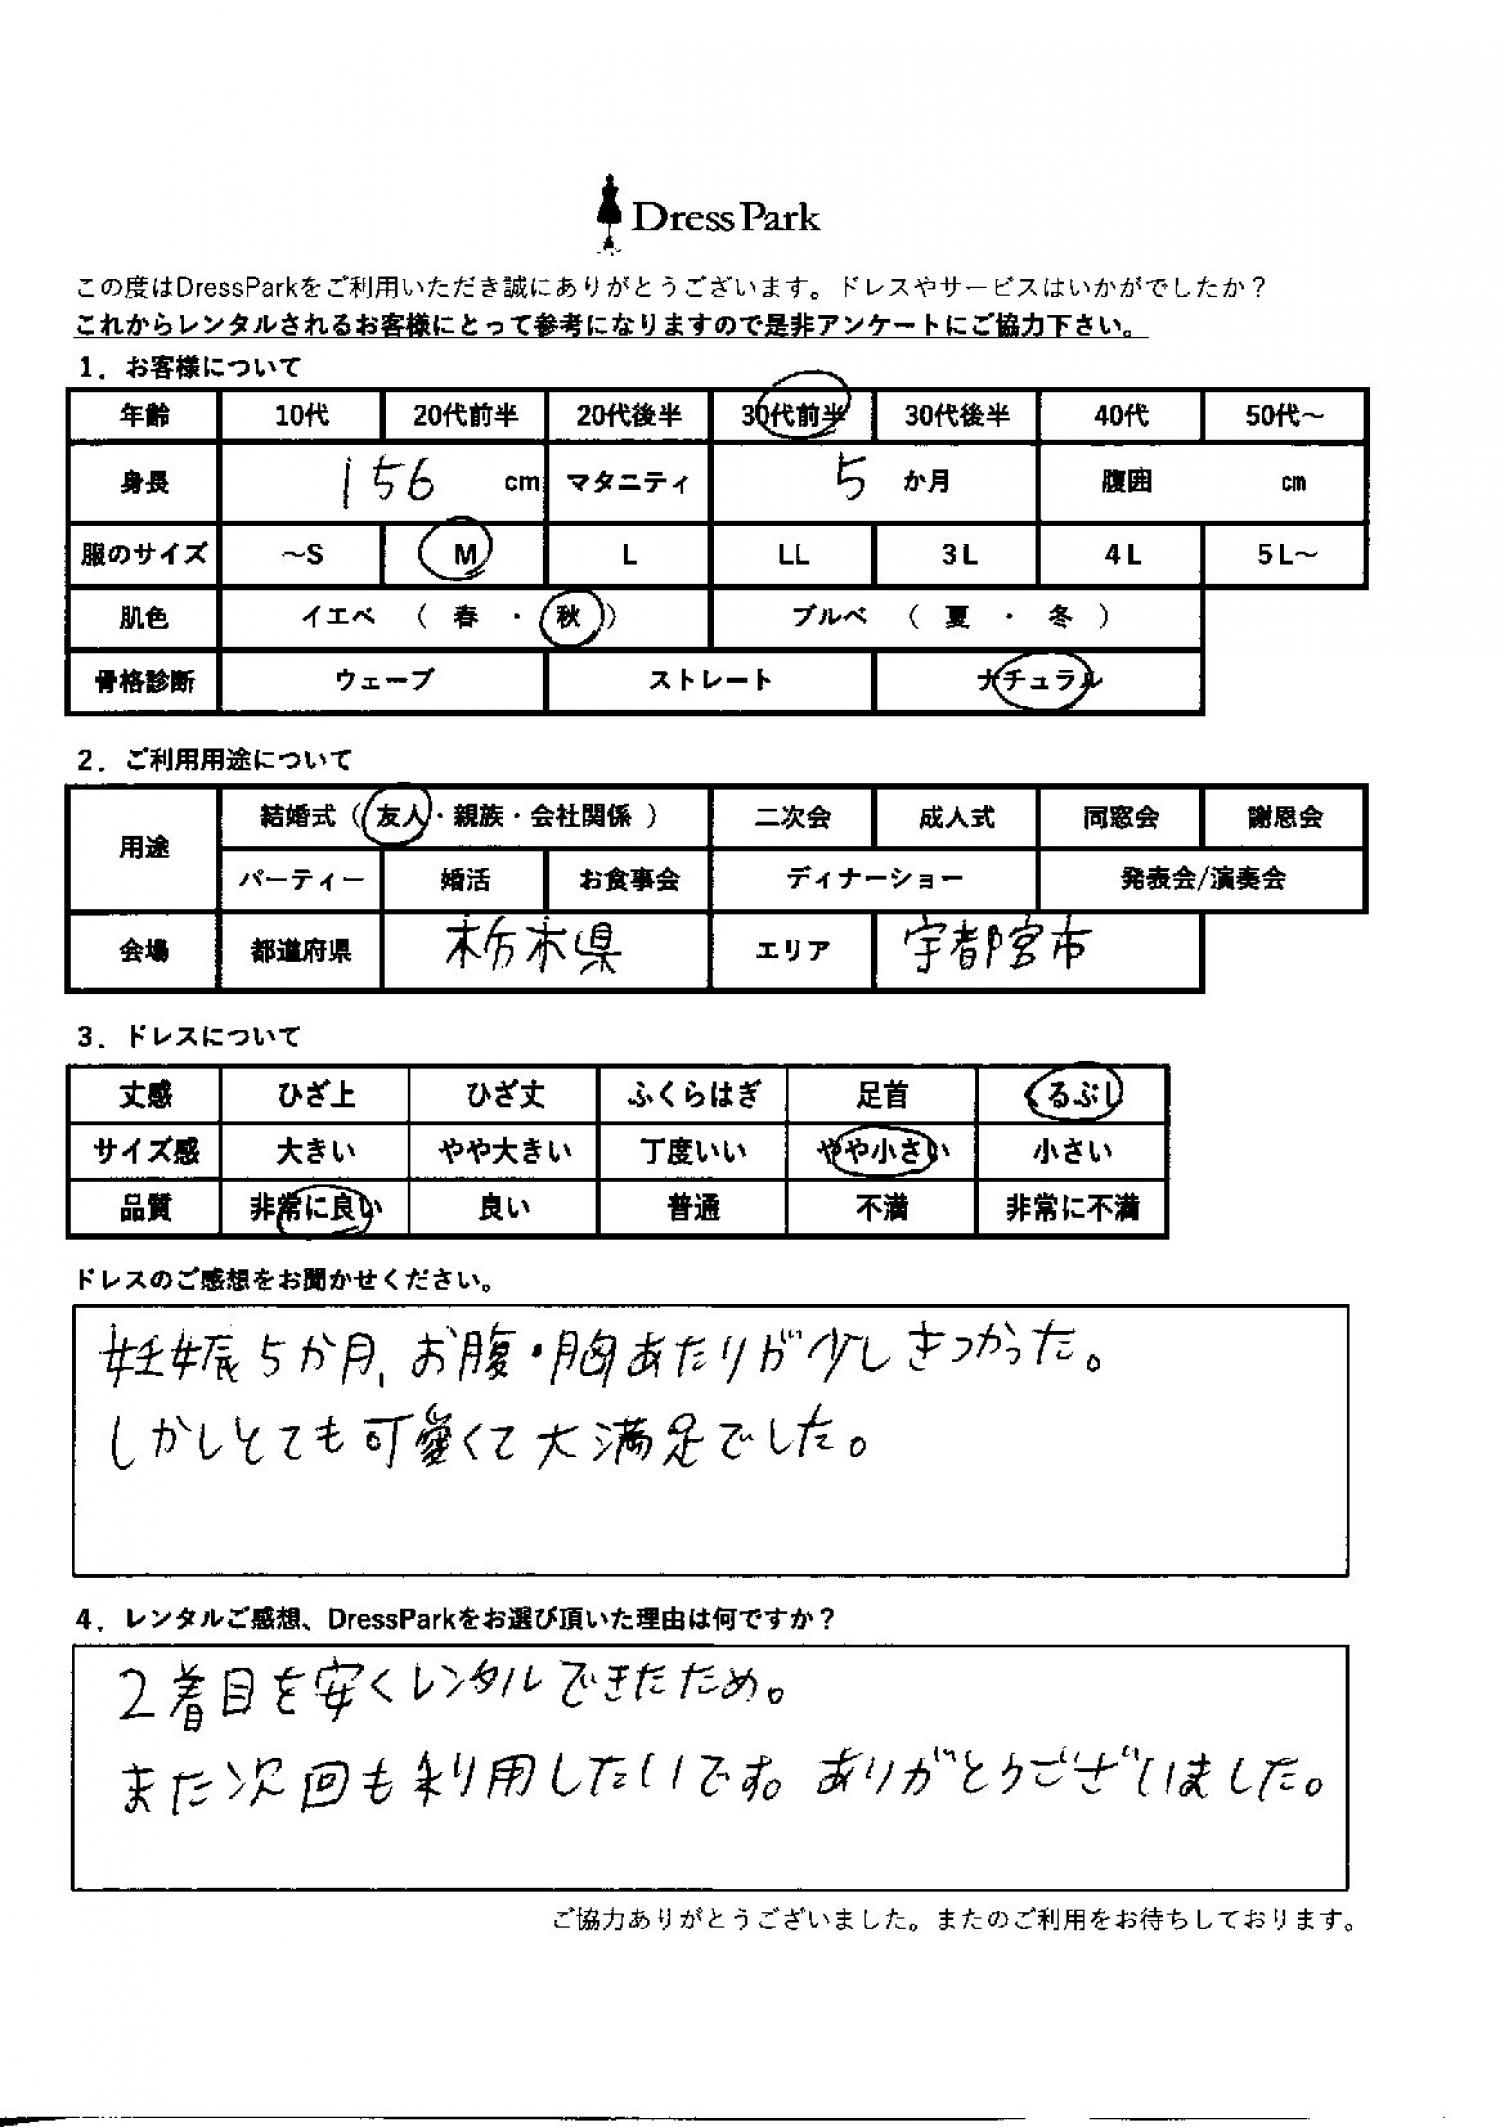 Dress Park
この度はDressParkをご利用いただき誠にありがとうございます。ドレスやサービスはいかがでしたか？
これからレンタルされるお客様にとって参考になりますので是非アンケートにご協力下さい。
1．お客様について
年齢 10代 20代前半 20代後半 30代前半 30代後半 40代 50代～
身長 156 cm マタニティ 5 か月 腹囲 cm
服のサイズ ～S M L LL 3L 4L 5L～
肌色 イエベ （ 春 ・ 秋 ） ブルベ （ 夏 ・ 冬 ）
骨格診断 ウェーブ ストレート ナチュラル
2．ご利用用途について
用途 結婚式（ 友人・親族・会社関係 ） 二次会 成人式 同窓会 謝恩会
パーティー 婚活 お食事会 ディナーショー 発表会/演奏会
会場 都道府県 栃木県 エリア 宇都宮市
3．ドレスについて
丈感 ひざ上 ひざ丈 ふくらはぎ 足首 くるぶし
サイズ感 大きい やや大きい 丁度いい やや小さい 小さい
品質 非常に良い 良い 普通 不満 非常に不満
ドレスのご感想をお聞かせください。
妊娠5か月、お腹・胸あたりが少しきつかった。
しかしとても可愛くて大満足でした。
4．レンタルご感想、DressParkをお選び頂いた理由は何ですか？
2着目を安くレンタルできたため。
また次回も利用したいです。ありがとうございました。
ご協力ありがとうございました。またのご利用をお待ちしております。